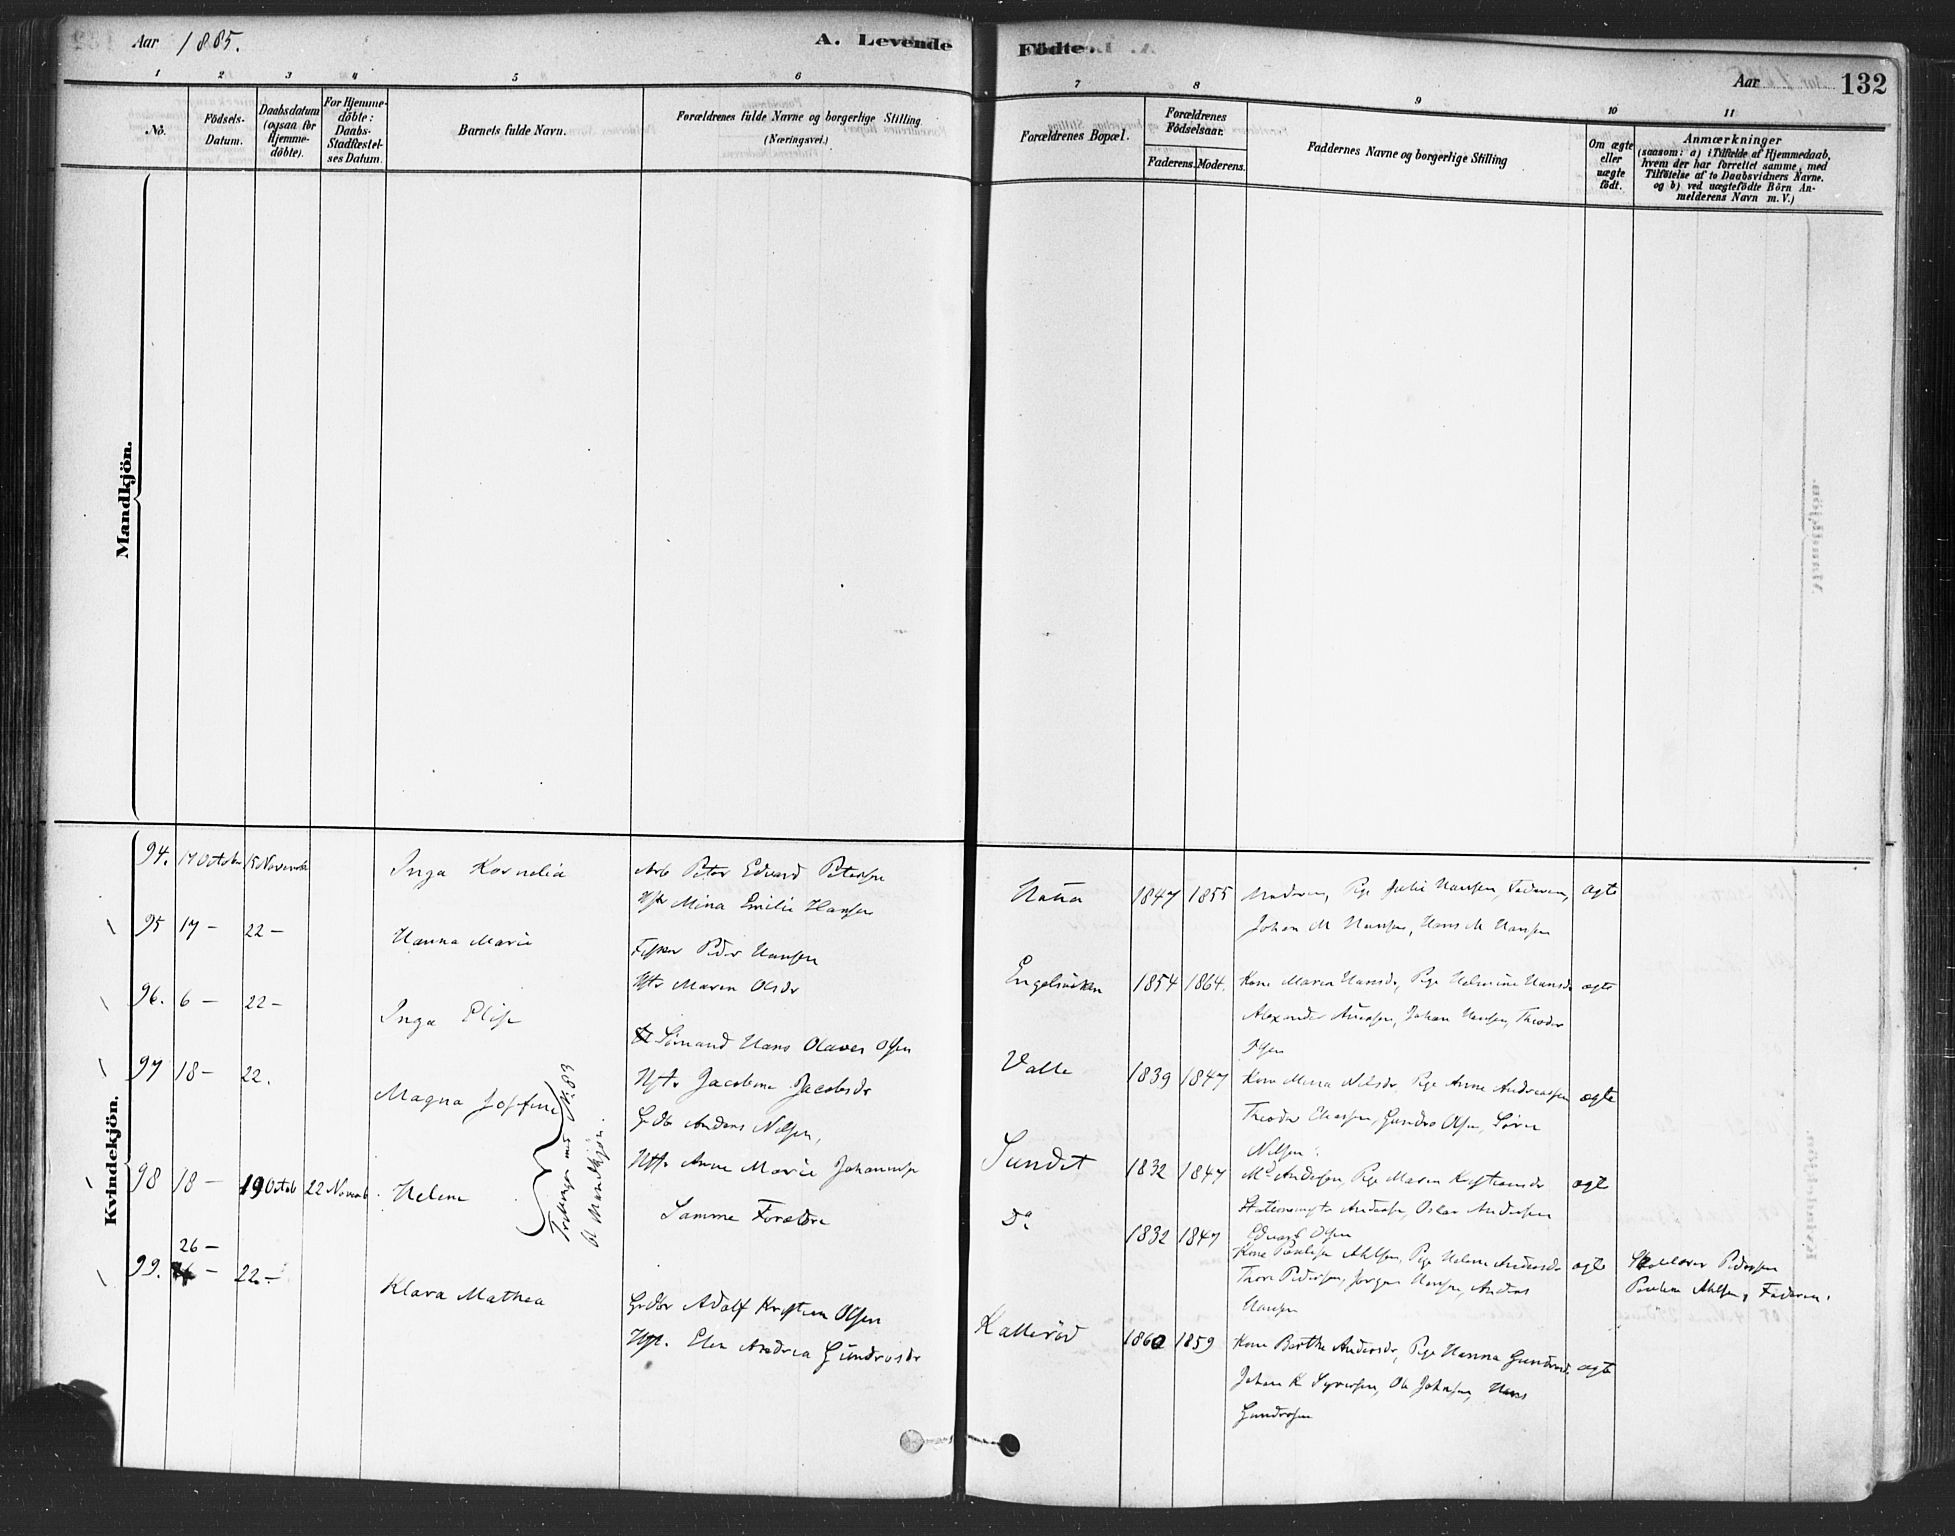 Aar 1885.
A. Levende
Födte.
Aar
132
1 2 3 4 5 6 7 8 9 10 11
No.
Födsels-
Datum.
Daabsdatum
(ogsaa for
Hjemme-
döbte).
For Hjemme-
döbte:
Daabs-
Stadfæstel-
ses Datum.
Barnets fulde Navn.
Forældrenes fulde Navne og borgerlige Stilling
(Næringsvei.)
Forældrenes Bopæl.
Forældrenes
Födselsaar.
Faderens.
Moderens.
Faddernes Navne og borgerlige Stilling
Om ægte
eller
uægte
födt.
Anmærkninger
(saasom: a) i Tilfælde af Hjemmedaab,
hvem der har forrettet samme, med
Tilföielse af to Daabsvidners Navne.
og b) ved uægtefödte Börn An-
melderens Navn m. V.)
Mandkjön.
Kvindekjön.
94. 17 Octobr 15 Novembr Inga Kornelia
Arb Peter Edvard Petersen
Hst Mina Emilie Hansen
1847 1855 Moderen, Pige Julie Hansen, Faderen, ægte
Johan M Hansen, Hans M Hansen
95 17 - 22 - Hanna Marie
Fisker Peder Hansen
Hst Maren Olsdr
Engelsviken 1854 1864. Kone Maren Hansdr, Pige Helmine Hansdr ægte
Alexander Hansen, Johan Hansen, Theodor
Olsen
96. 6 - 22 - Inga Elise
Sömand Hans Olaves Olsen
Hst Jacobine Jacobsdr
Valle 1839 1847 Kone Mina Nilsdr, Pige Anne Andreassen ægte
Theodor Eliassen, Gundro Olsen, Sören
Nilsen.
97 18 - 22. Magna Josefine
Grdbr Anders Nilsen,
Hst. Anne Marie Johannesen
Sundet 1832 1847 Md Andersen, Pige Maren Kristiansdr ægte
Andersen, Oskar Andersen
Edvard Olsen
Trillinger med N. 83
af Mandkjön.
98 18 - 19 Octob 22 Novemb. Helene
Samme Forældre
Do 1832 1847 Kone Pauline Ahlsen, Pige Helene Andersdr ægte
Thore Pedersen, Jörgen Hansen, Anders
Hansen
Pedersen
Pauline Ahlsen, Faderen.
99. 26 - 22. - Klara Mathea
Grdbr Adolf Kristian Olsen
Hst. Elen Andrea Gundrosdr
Kalleröd 1860 1859 Kone Berthe Andersdr, Pige Hanna Gundrosd. ægte
Johan K Syversen, Ole Johnsen, Hans
Gundrosen